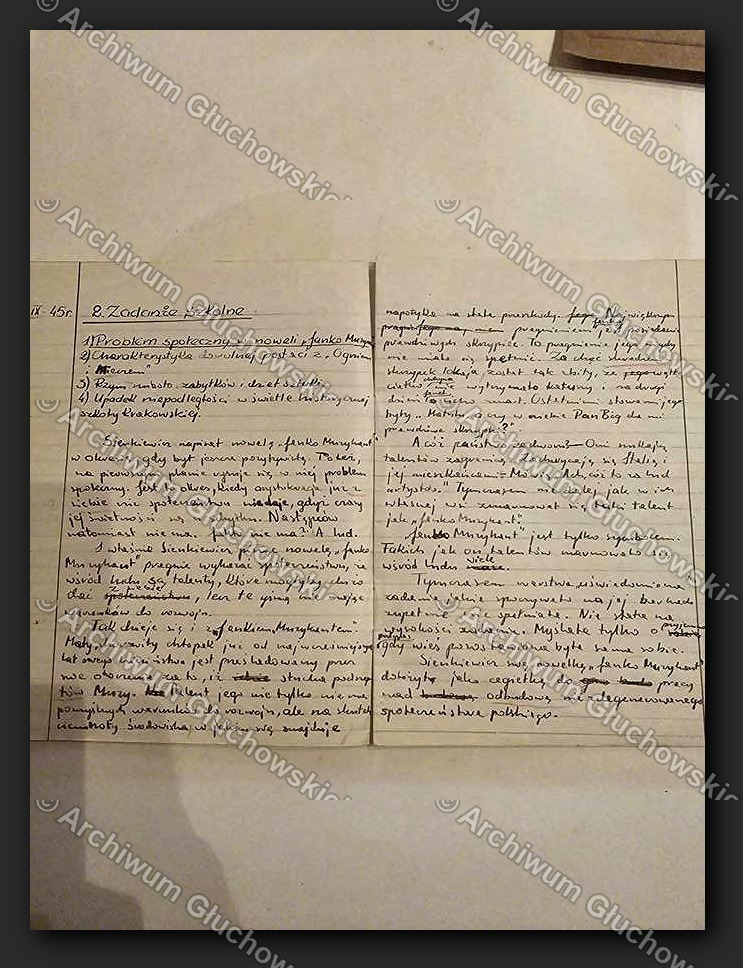 IX-45r.
2. Zadanie szkolne
1) Problem społeczny w noweli „Janko Muzykant
2) Charakterystyka dowolnej postaci z „Ogniem
i Mieczem"
3) Rzym miasto zabytków i dzieł sztuki
4) Upadek niepodległości w świetle historycznej
szkoły krakowskiej.
Sienkiewicz napisał nowelę „Janko Muzykant"
w okresie, gdy był jeszcze pozytywistą. To też,
na pierwszym planie uznaje się w niej problem
społeczny. Jest to okres, kiedy arystokracja już z
siebie nic społeczeństwu nie daje, gdyż czasy
jej świetności są w zaniku. Następców
natomiast nie ma. Jak to nie ma? A lud.
I właśnie Sienkiewicz pisząc nowelę „Janko
Muzykant" pragnie wykazać społeczeństwu, że
wśród ludu są talenty, które mogłyby dużo
dać społeczeństwu, lecz te giną nie mając
warunków do rozwoju.
Tak dzieje się i z „Jankiem Muzykantem".
Mały chłopak już od najwcześniejszych
lat swego dzieciństwa jest prześladowany przez
swe otoczenie za to, iż słucha podszep
tów Muzy. Talent jego nie tylko nie ma
pomyślnych warunków do rozwoju, ale na skutek
ciemnoty środowiska w jakim się znajduje
napotyka na stałe przeszkody. Największym
pragnieniem jest posiadanie
prawdziwych skrzypiec. To pragnienie jego nigdy
nie miało się spełnić. Za chęć
skrzypek lokaja został tak zbity, że jego wątłe
ciałko nie wytrzymało katuszy i na drugi
dzień Janek umarł. Ostatnimi słowami jego
były „Matulu, a czy w niebie Pan Bóg da mi
prawdziwe skrzypki?"
A cóż państwo we dworze? Oni szukają
talentów zagranicą. Zachwycają się Italią i
jej mieszkańcami. Mówią: „Ach, cóż to za lud
artystów." Tymczasem nie dalej jak w ich
własnej wsi zmarnował się taki talent
jak „Janko Muzykant".
„Janko Muzykant" jest tylko symbolem.
Takich jak on talentów marnowało się
wśród ludu wiele
Tymczasem warstwa uświadomiona
zadania, jakie spoczywało na jej barkach
zupełnie nie spełniała. Nie stała na
wysokości zadania. Myślała tylko o
gdy wieś pozostawiona była sama sobie.
Sienkiewicz swą nowelką „Janko Muzykant"
dołożył jako cegiełkę do pracy
nad odbudową zdegenerowanego
społeczeństwa polskiego.
© Archiwum Głuchowskie